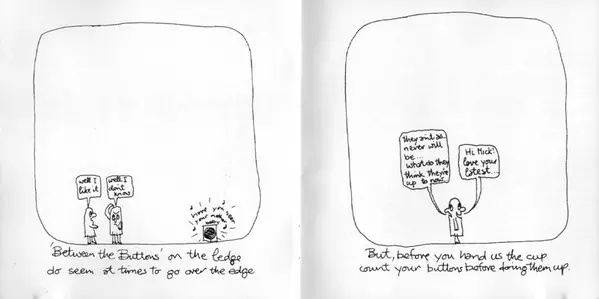 well I
like it
well I
don't
know
have you seen
your mother
baby
'Between the Buttons' on the ledge
do seem at times to go over the edge
they aint so
never will
be...
what do they
think they're
up to now
Hi Mick!
love your
latest...
But, before you hand us the cup
count your buttons before doing them up.